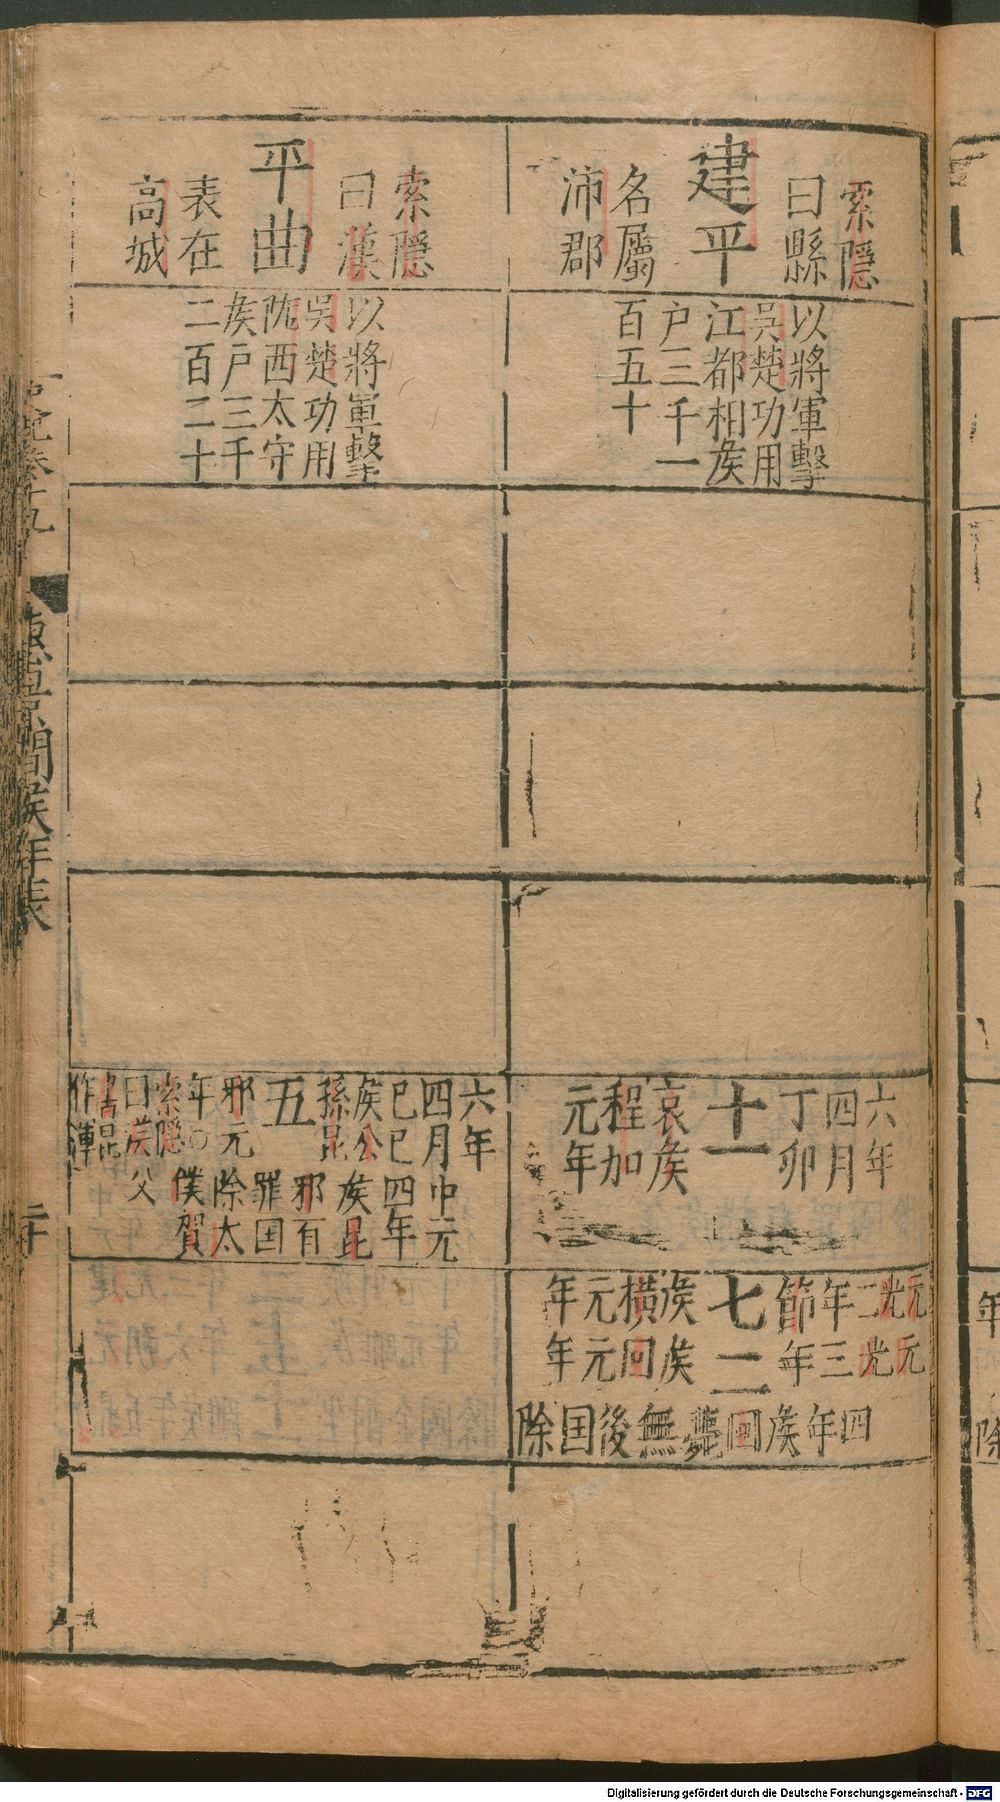 索隱
曰縣
建平
名屬
沛郡
以將軍擊
吳楚功用
江都相矦
户三千一
百五十
六年
四月
丁卯
十一
哀矦
程加
元年
元光二年節
七
矦橫元年
元光三年
二
矦回元年
四年矦回薨無後国除
索隱
曰漢
平曲
表在
高城
以將軍擊
吳楚功用
隴西太守
矦户三千
二百二十
六年
四月
巳巳
矦公
孫昆
五
邪元
年○
索隱
曰漢
書昆
作渾
中元
四年
矦昆
邪有
罪国
除太
僕賀
父
史記卷十九
惠景間矦年表
二十
Digitalisierung gefördert durch die Deutsche Forschungsgemeinschaft - DFG